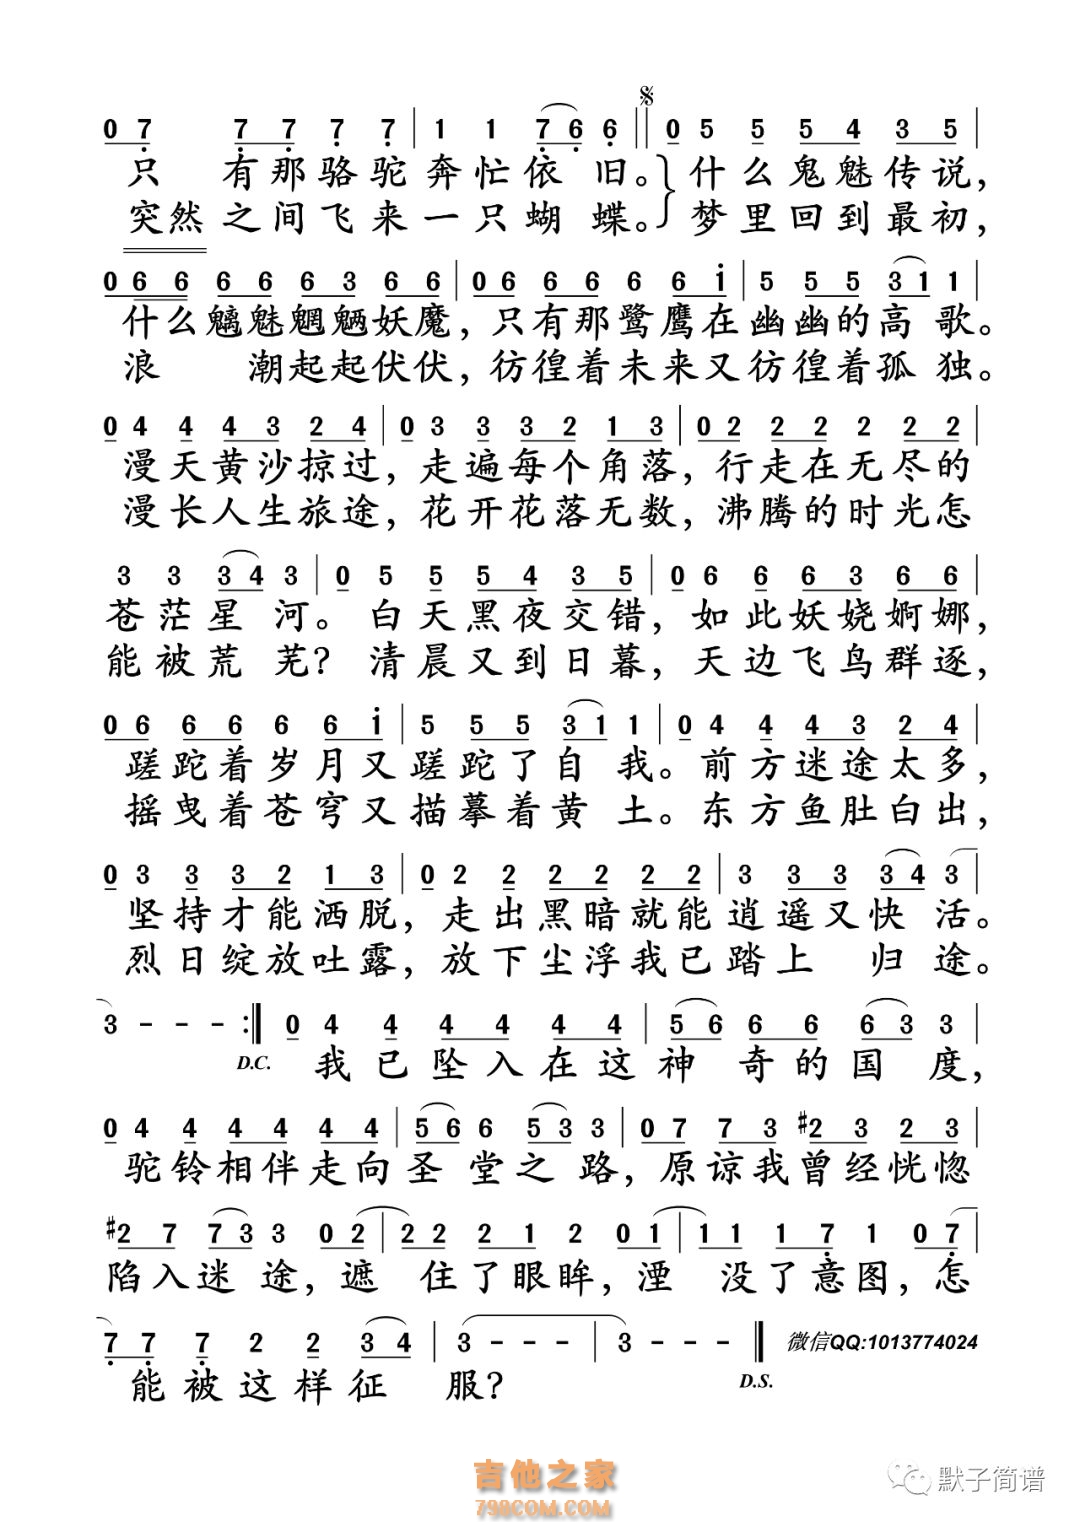 0 7 7 7 7 7 | 1 1 7 6 6 || 0 5 5 5 4 3 5 |
只 有那骆驼奔忙依旧。} 什么鬼魅传说，
突然之间飞来一只蝴蝶。} 梦里回到最初，
0 6 6 6 6 6 3 6 6 | 0 6 6 6 6 6 i | 5 5 5 3 1 1 |
什么魑魅魍魉妖魔，只有那鹭鹰在幽幽的高歌。
浪 潮起起伏伏，彷徨着未来又彷徨着孤独。
0 4 4 4 3 2 4 | 0 3 3 3 2 1 3 | 0 2 2 2 2 2 2 |
漫天黄沙掠过，走遍每个角落，行走在无尽的
漫长人生旅途，花开花落无数，沸腾的时光怎
3 3 3 4 3 | 0 5 5 5 4 3 5 | 0 6 6 6 3 6 6 |
苍茫星河。白天黑夜交错，如此妖娆婀娜，
能被荒芜？清晨又到日暮，天边飞鸟群逐，
0 6 6 6 6 6 i | 5 5 5 3 1 1 | 0 4 4 4 3 2 4 |
蹉跎着岁月又蹉跎了自我。前方迷途太多，
摇曳着苍穹又描摹着黄土。东方鱼肚白出，
0 3 3 3 2 1 3 | 0 2 2 2 2 2 2 | 3 3 3 3 4 3 |
坚持才能洒脱，走出黑暗就能逍遥又快活。
烈日绽放吐露，放下尘浮我已踏上归途。
3 - - - :|| 0 4 4 4 4 4 4 | 5 6 6 6 6 3 3 |
D.C. 我已坠入在这神奇的国度，
0 4 4 4 4 4 4 | 5 6 6 5 3 3 | 0 7 7 3 #2 3 2 3 |
驼铃相伴走向圣堂之路，原谅我曾经恍惚
#2 7 7 3 3 0 2 | 2 2 2 1 2 0 1 | 1 1 1 7 1 0 7 |
陷入迷途，遮住了眼眸，湮没了意图，怎
7 7 7 2 2 3 4 | 3 - - - | 3 - - - || 微信QQ:1013774024
能被这样征服？ D.S.
吉他之家
798COM.COM
默子简谱